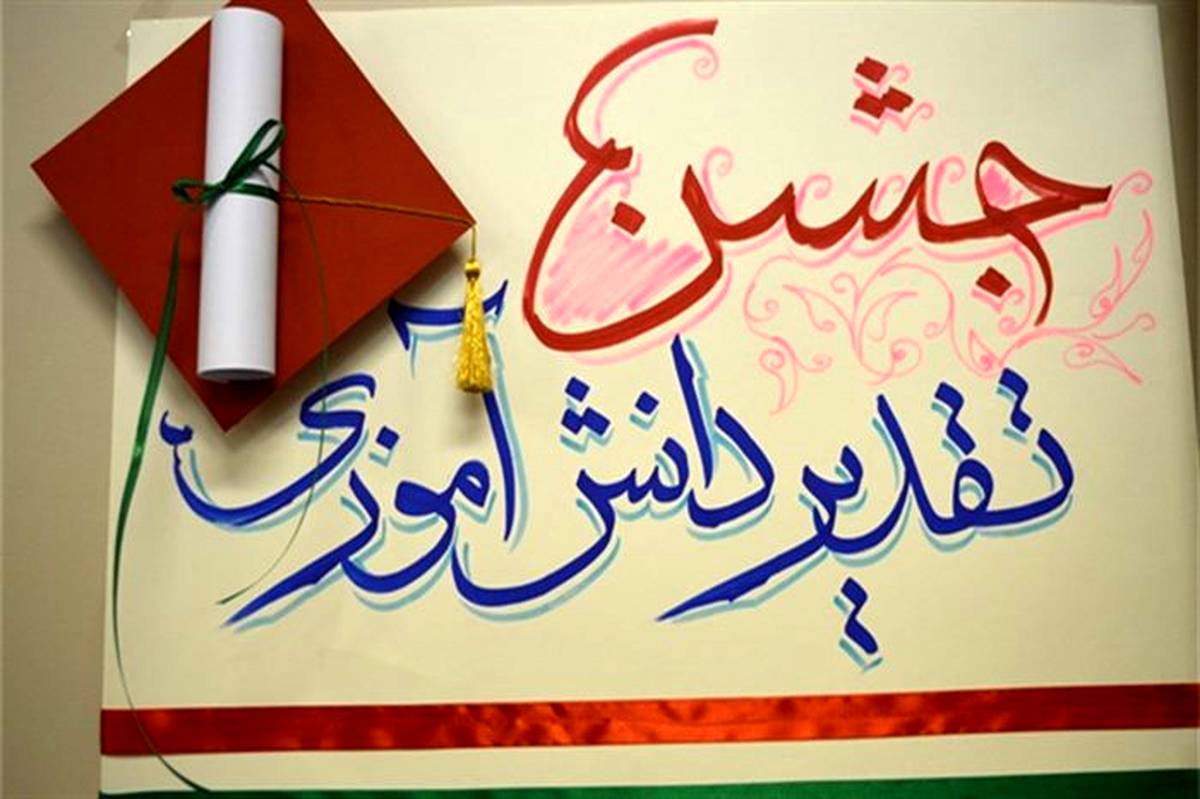 جشن
تقدیر دانش آموزی